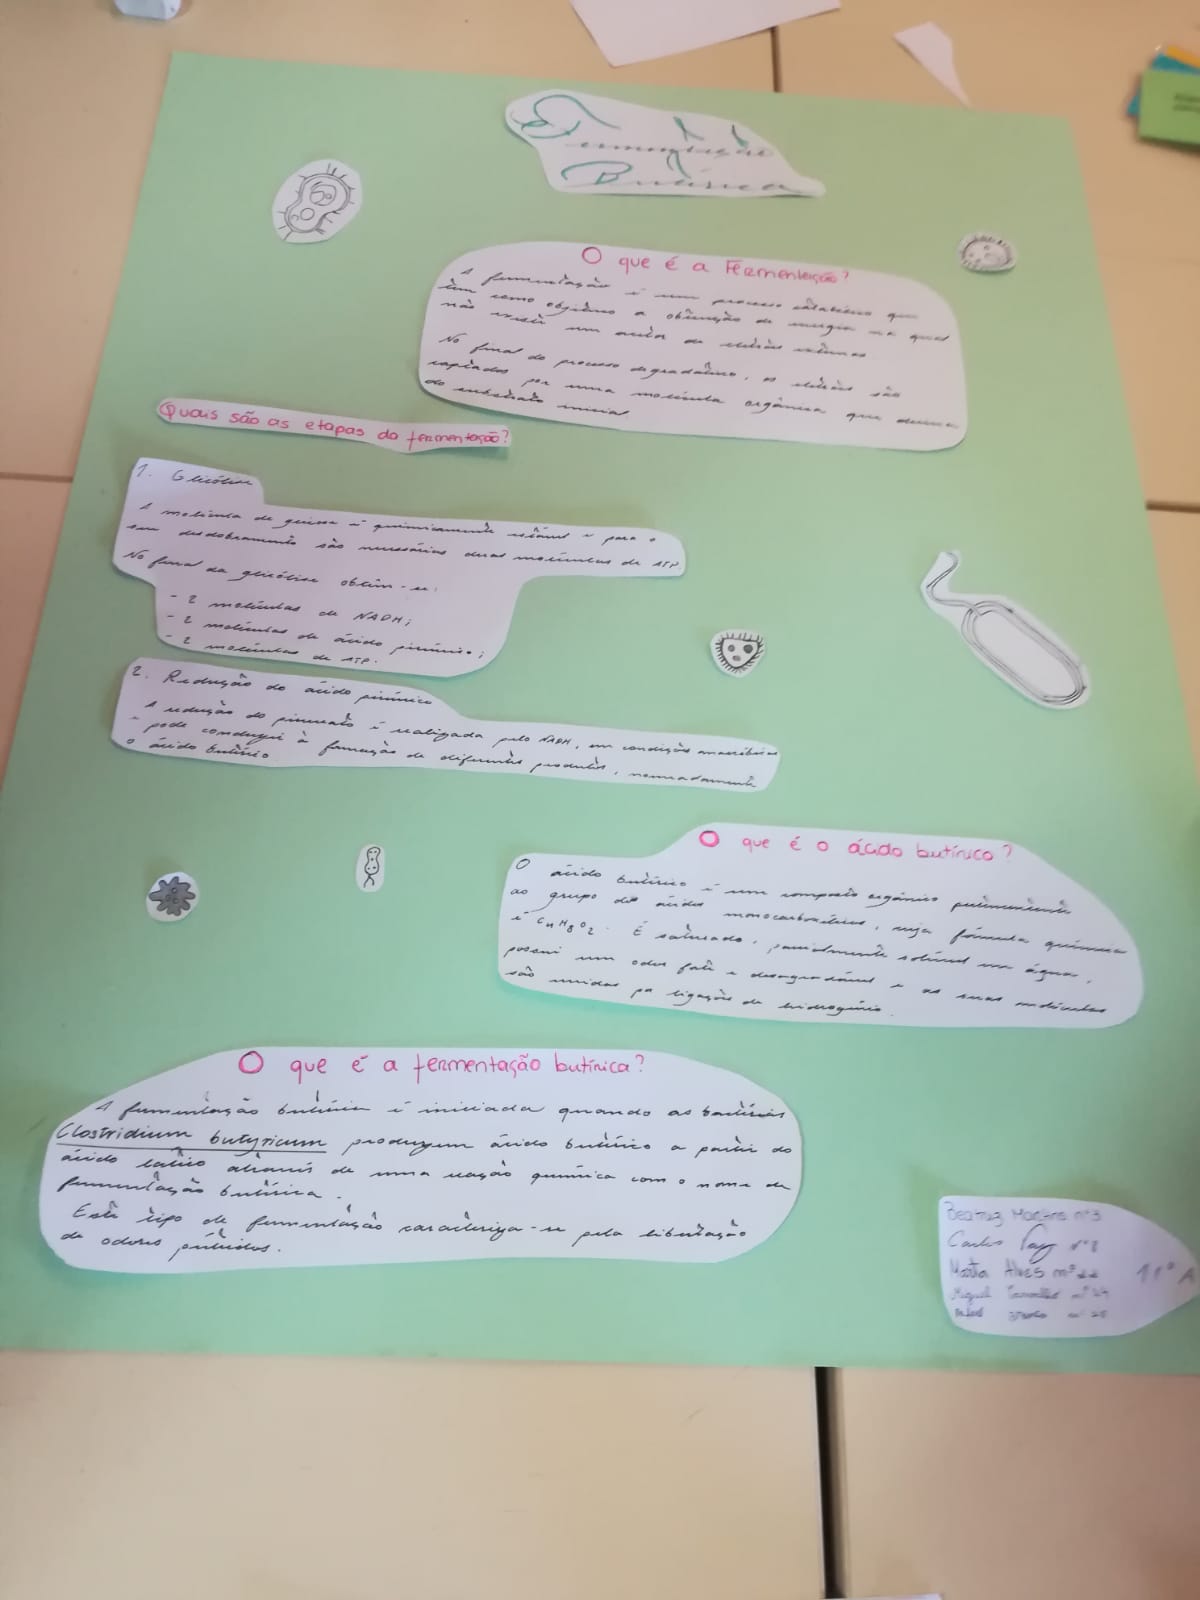 Fermentação
Butírica
O que é a Fermentação?
A fermentação é um processo catabólico que
tem como objetivo a obtenção de energia na qual
não existe um aceitor de eletrões externos
No final do processo degradativo, os eletrões são
captados por uma molécula orgânica que deriva
do substrato inicial
Quais são as etapas da fermentação?
1. Glicólise
A molécula de glicose é quimicamente estável e para o
seu desdobramento são necessárias duas moléculas de ATP.
No final da glicólise obtém-se:
- 2 moléculas de NADH;
- 2 moléculas de ácido pirúvico;
- 2 moléculas de ATP.
2. Redução do ácido pirúvico
A redução do piruvato é realizada pelo NADH, em condições anaeróbias
e pode conduzir à formação de diferentes produtos, nomeadamente
o ácido butírico
O que é o ácido butírico?
O ácido butírico é um composto orgânico pertencente
ao grupo dos ácidos monocarboxílicos, cuja fórmula química
é C4H8O2. É saturado, parcialmente solúvel em água,
possui um odor forte e desagradável e as suas moléculas
são unidas por ligações de hidrogénio.
O que é a fermentação butírica?
A fermentação butírica é iniciada quando as bactérias
Clostridium butyricum produzem ácido butírico a partir do
ácido lático através de uma reação química com o nome de
fermentação butírica.
Este tipo de fermentação caracteriza-se pela libertação
de odores pútridos.
Beatriz Martins nº3
Carlos Vaz nº8
Marta Alves nº22
11º A
Miguel Carvalho nº24
nº25